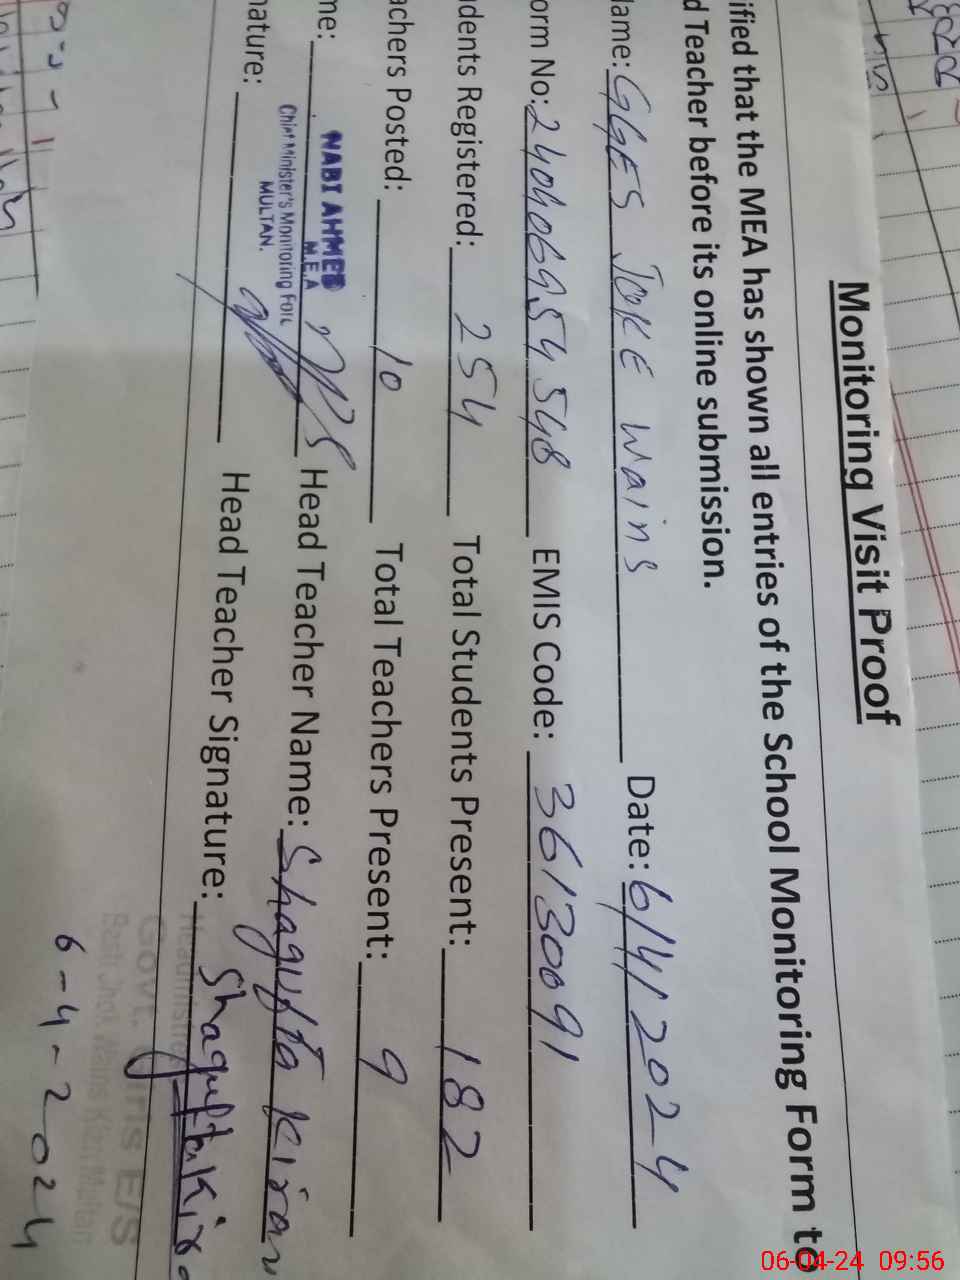 Monitoring Visit Proof
ified that the MEA has shown all entries of the School Monitoring Form to
d Teacher before its online submission.
ame: GGES JOKE Wains Date: 6/4/2024
orm No: EMIS Code: 36130091
dents Registered: 254 Total Students Present: 182
achers Posted: 10 Total Teachers Present: 9
me: Head Teacher Name: Shagufta Kiran
NABI AHMED
M.E.A
Chief Minister's Monitoring Forc
MULTAN.
nature: Head Teacher Signature: Shagufta Kira
Govt. Girls E/S
6-4-2024
06-04-24 09:56